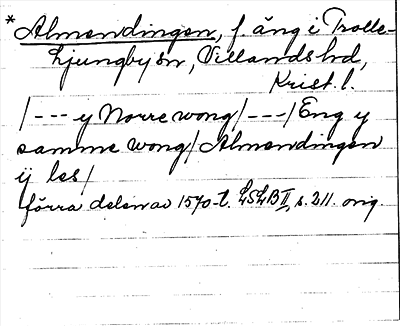 * Almendingen, f. äng i Trolle-
Ljungby sn, Villands hd,
Krist. l.
/--- y Norre wong/---/Eng y
samme wong/Almendingen
ij les/
förra delen av 1570-t. LSLB II, s. 211. orig.